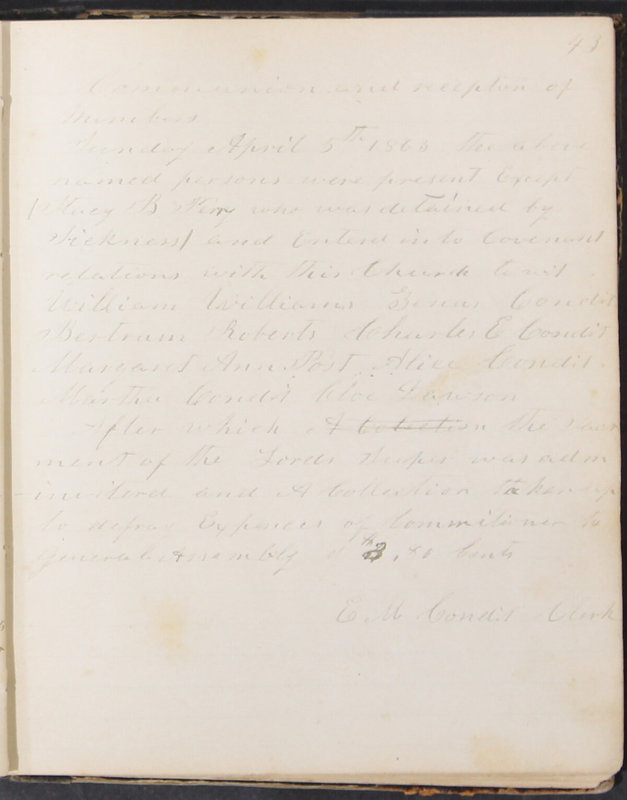 43
Communion and reception of
Members
Sunday April 5th 1863 the above
named persons were present Except
(Stacy B Terry who was detained by
Sickness) and Enterd into Covenant
relations with this Church to wit
William Williams Condit
Bertrum Roberts Charles E Condit
Margaret Ann Post Alice Condit
Martha Condit Cloe Lawson
After which A Colection the Sacr
ment of the Lords Super was adm
inisterd and A Collection taken up
to defray Expences of Commitioner to
General Assembly of $3.
Cents
E. M. Condit Clerk